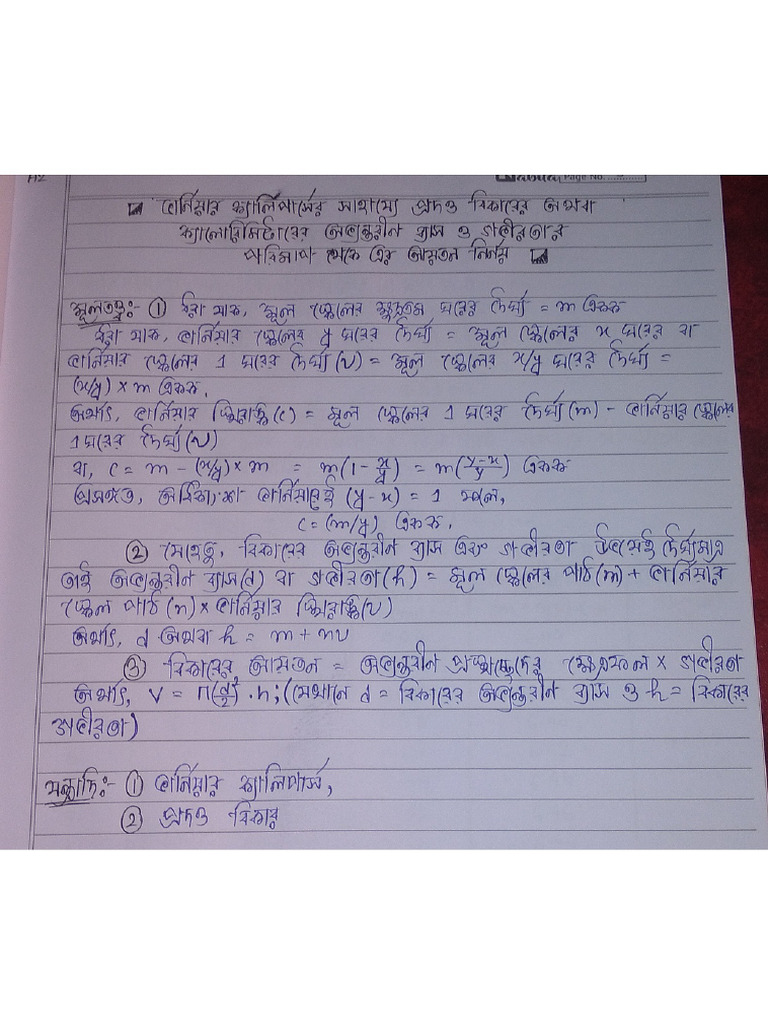 A2
Page No. ............
ভার্নিয়ার ক্যালিপার্সের সাহায্যে প্রদত্ত বিকারের অথবা
ক্যালোরিমিটারের অভ্যন্তরীন ব্যাস ও গভীরতার
পরিমাপ থেকে এর আয়তন নির্নয়
মূলতত্ত্ব:- ① ধরা যাক, মূল স্কেলের ক্ষুদ্রতম ঘরের দৈর্ঘ্য = m একক
ধরা যাক, ভার্নিয়ার স্কেলের y ঘরের দৈর্ঘ্য = মূল স্কেলের x ঘরের বা
ভার্নিয়ার স্কেলের 1 ঘরের দৈর্ঘ্য (v) = মূল স্কেলের x/y ঘরের দৈর্ঘ্য =
(x/y) × m একক.
অর্থাৎ, ভার্নিয়ার স্থিরাঙ্ক (c) = মূল স্কেলের 1 ঘরের দৈর্ঘ্য (m) - ভার্নিয়ার স্কেলের
1 ঘরের দৈর্ঘ্য (v)
বা, c = m - (x/y) × m = m(1 - x/y) = m(y-x/y) একক
প্রসঙ্গত, ভার্নিয়ারেই (y - x) = 1 হলে,
c = (m/y) একক.
② যেহেতু, বিকারের অভ্যন্তরীন ব্যাস এবং গভীরতা উভয়েই দৈর্ঘ্যমাত্র
তাই অভ্যন্তরীন ব্যাস (d) বা গভীরতা (h) = মূল স্কেলের পাঠ (m) + ভার্নিয়ার
স্কেল পাঠ (n) × ভার্নিয়ার স্থিরাঙ্ক (v)
অর্থাৎ, d অথবা h = m + nv
③ বিকারের আয়তন = অভ্যন্তরীন প্রস্থচ্ছেদের ক্ষেত্রফল × গভীরতা
অর্থাৎ, V = π(d/2)² . h; (যেখানে d = বিকারের অভ্যন্তরীন ব্যাস ও h = বিকারের
গভীরতা)
যন্ত্রাদি:- ① ভার্নিয়ার ক্যালিপার্স,
② প্রদত্ত বিকার